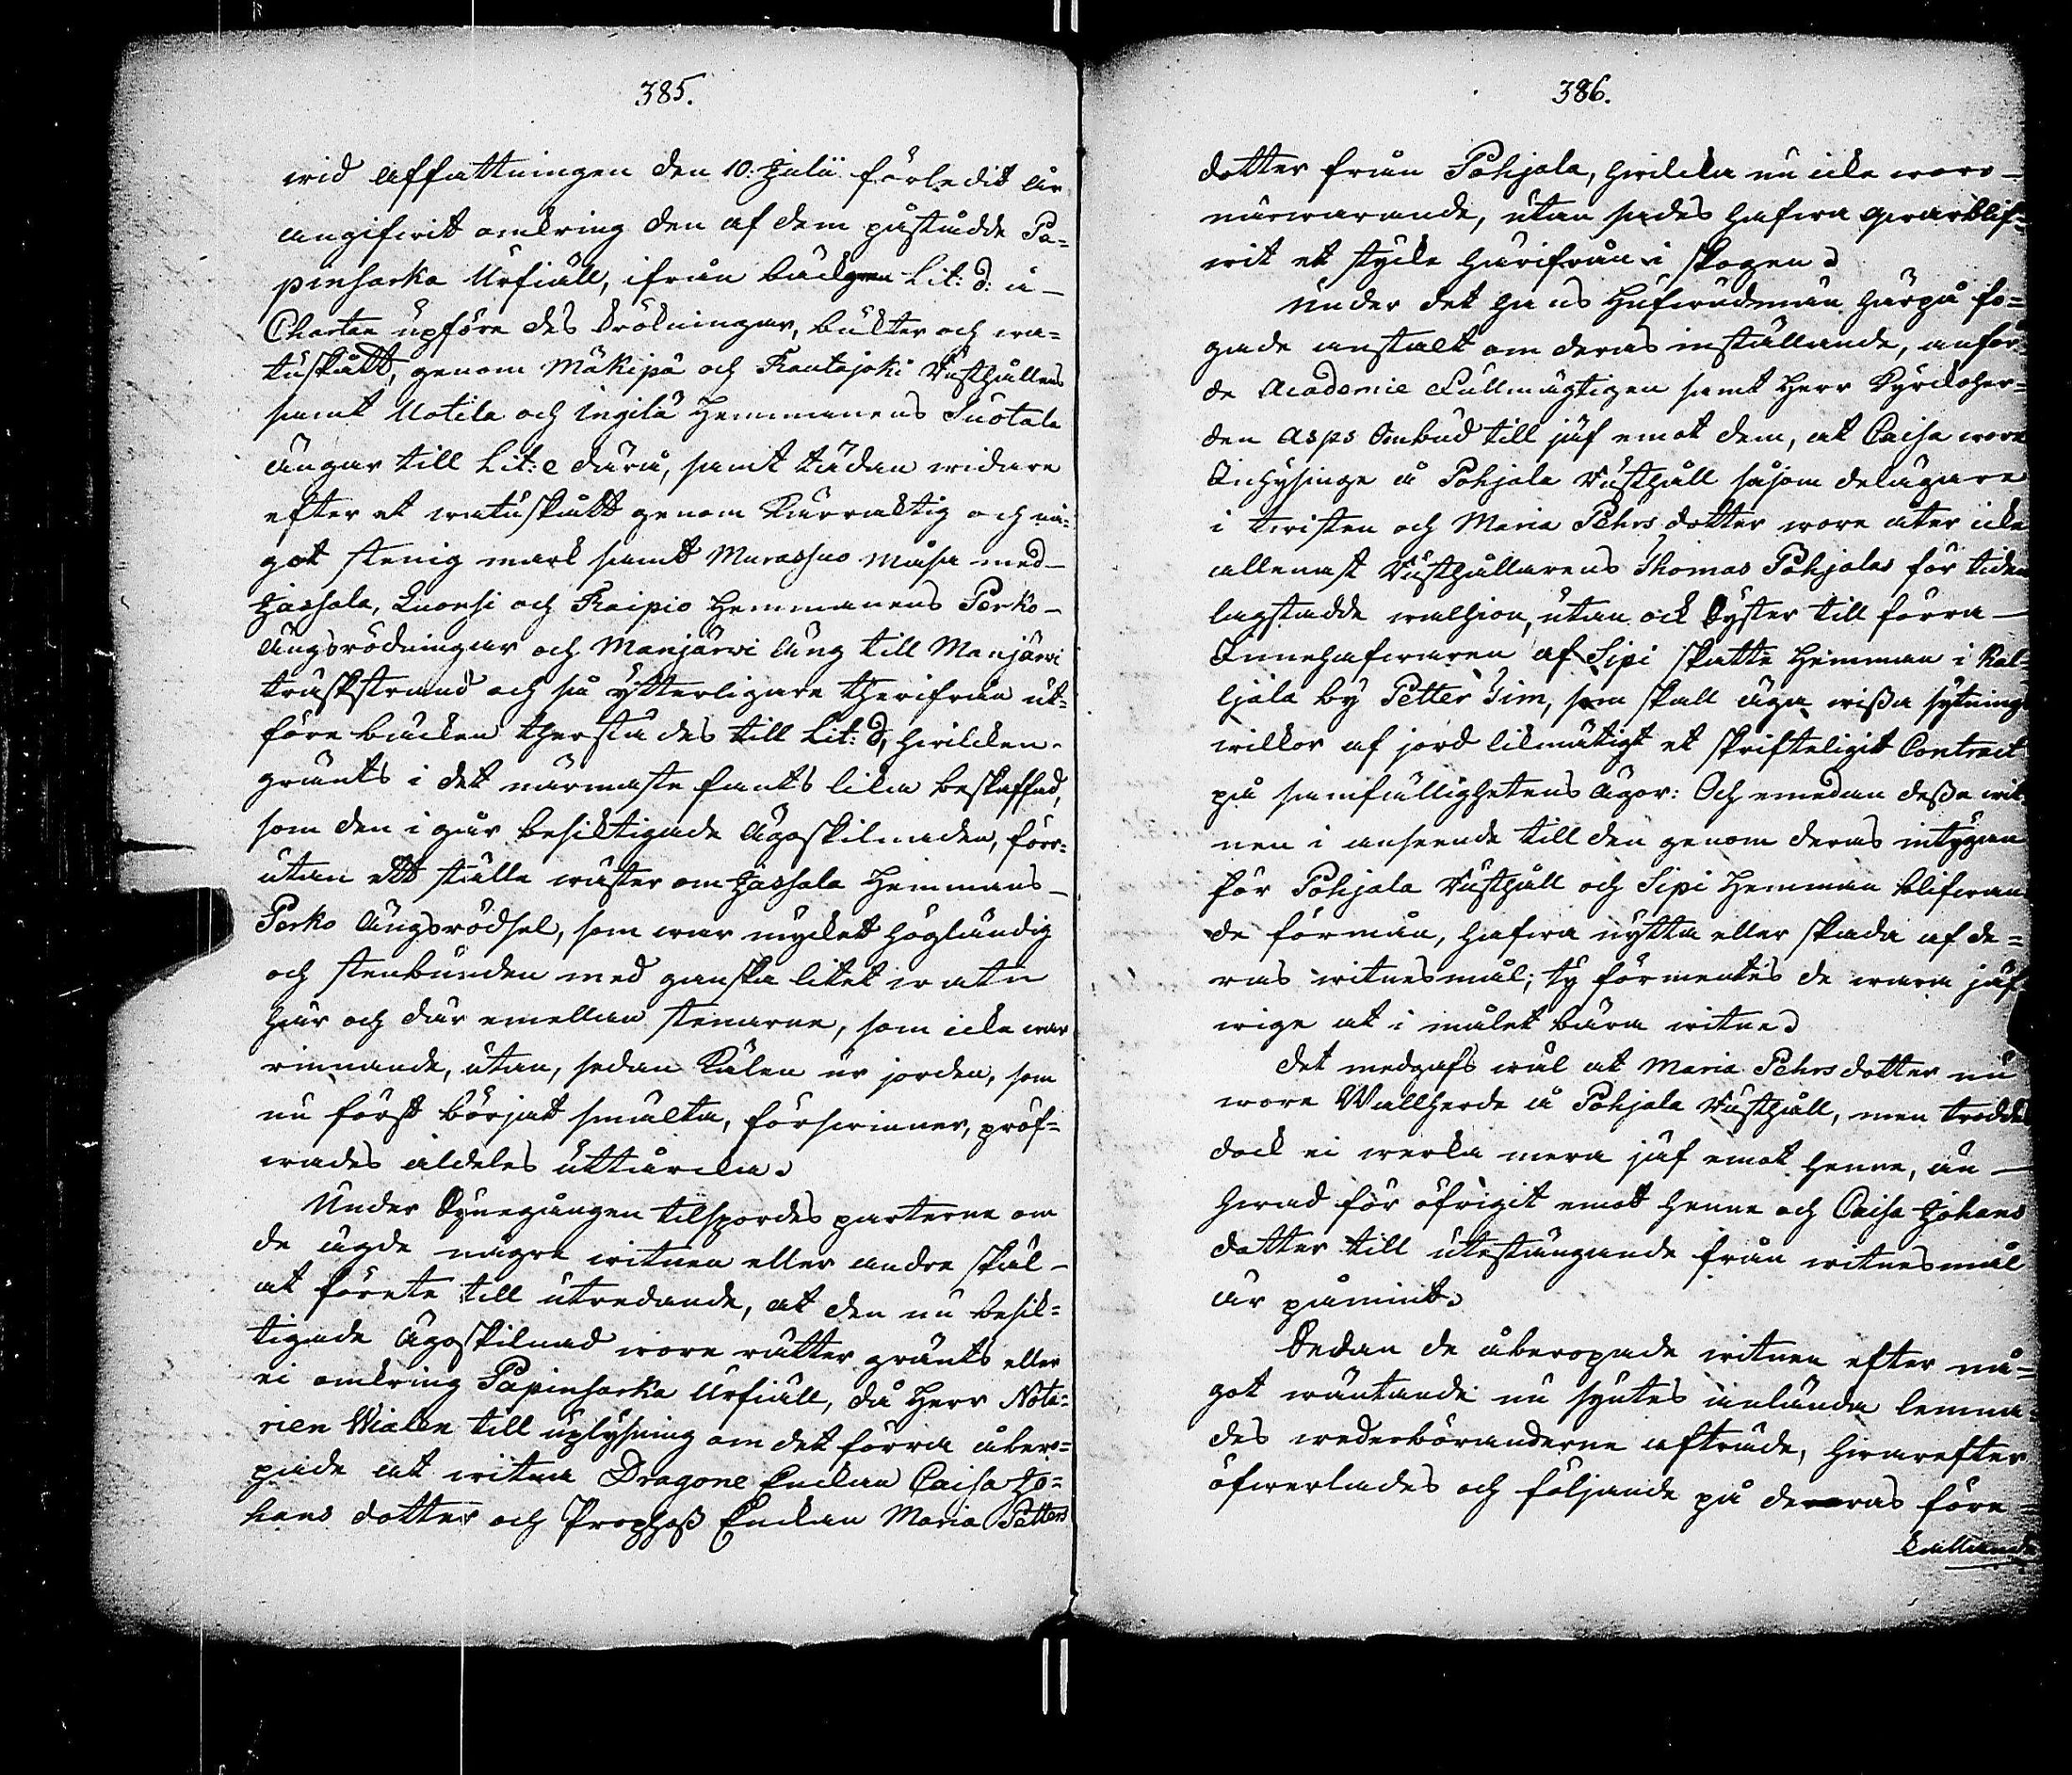 385.
wid affattningen den 10: Julii förledit år
angifwit omkring den af dem påstådde Pa-
pinsarka Urfiäll, ifrån bäcken Lit: d: å
Chartan upföre des krökningar, bukter och wa-
tuskått, genom Mäkipä och Rautajoki Rusthållens
samt Uotila och Ingilä Hemmanens Suotala
ängar till Lit: e därå, samt dädan widare
efter et watuskått genom Kärraktig och nå-
got stenig mark samt Murassuo måsa med
Jassala, Knorsi och Raipio Hemmanens Perko
Ängsrödningar och Manjärwi äng till Manjärwi
träskstrand och så ytterligare therifrån ut-
före bäcken therstädes till Lit: d, hwilcken
gränts i det närmaste fants lika beskaffad,
som den i går besiktigade Ägoskilnaden, förr-
utan ett ställe wäster om Jassala Hemmans
Perko Ängsrödsel, som war mycket högländig
och stenbunden med ganska litet watn
här och där emellan stenarne, som icke war
rinnande, utan, sedan Kälen ur jorden, som
nu först börjat smälta, förswinner, pröf-
wades aldeles uttårcka.
Under Synegången tilspordes parterne om
de ägde någre witnen eller andre skäl
at förete till utredande, at den nu besik-
tigade Ägoskilnad wore rätter gränts eller
ei omkring Papinsarka Urfiäll, då Herr Nota-
rien Wialen till uplysning om det förra åbero-
pade at witna Dragone Enckan Caisa Jo-
hans dotter och Prophoss Enckan Maria Petters
386.
dotter från Pohjala, hwilcka nu icke woro
närwarande, utan sades hafwa qwarblif-
wit et stycke härifrån i skogen.
Under det Hans Hufwudman härpå fo-
gade anstalt om deras inställande, anför-
de Academie Fullmägtigen samt Herr Kyrckoher-
den Asps Ombud till jäf emot dem, at Caisa wore
Inhysinge å Pohjala Rusthåll såsom delägare
i twisten och Maria Pehrs dotter wore åter icke
allenast Rusthållarens Thomas Pohjalas för tiden
lagstadde wallhion, utan ock Syster till förra
Innehafwaren af Sipi skatte Hemman i Kal-
ljala by Petter Sim, som skall äga wissa sytnings
wilkor af jord likmätigt et skrifteligit Contract
på samfälligheten Ägor: Och emedan dessa wit-
nen i anseende till den genom deras intygan
för Pohjala Rusthåll och Sipi Hemman blifwan-
de förmån, hafwa nytta eller skada af de-
ras witnesmål; ty förmentes de wara jäf-
wige at i målet bära witne.
Det medgafs wäl at Maria Pehrs dotter nu
wore Wallherde å Pohjala Rusthåll, men troddes
dock ei werka mera jäf emot henne, än
hwad för öfrigit emot henne och Caisa Johans
dotter till utestängande från witnesmål
är påmint.
Sedan de åberopade witnen efter nå-
got wäntande nu syntes anlända lemna-
des wederböranderne afträde, hwarefter
öfwerlades och följande på deras före-
kallande